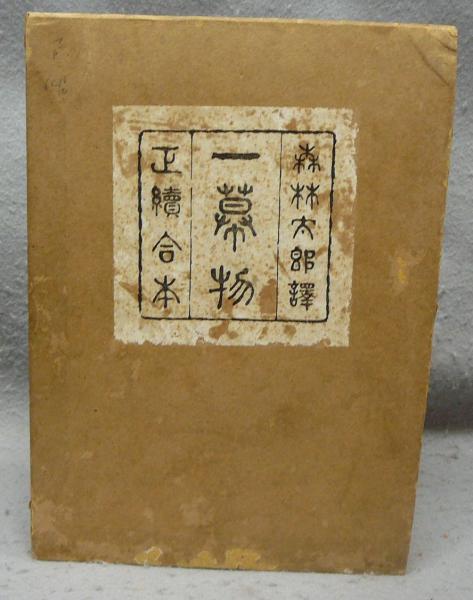 森林太郎譯
一幕物
正續合本